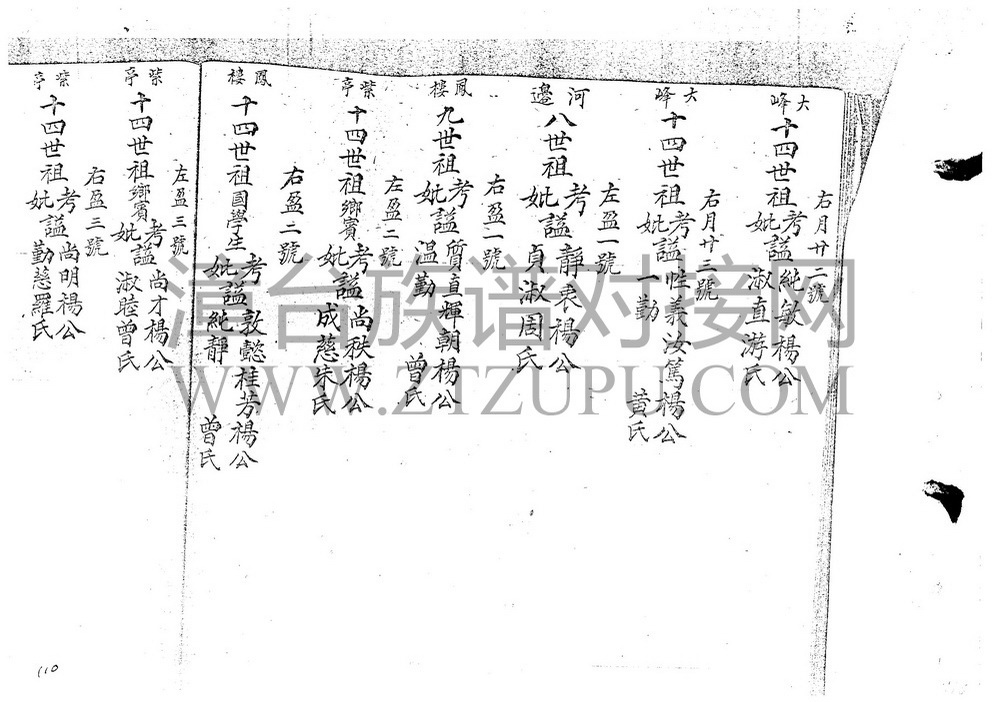 右月廿二號
大峰 十四世祖考謚純敏楊公
妣 淑直游氏
右月廿三號
大峰 十四世祖考謚性義汝篤楊公
妣 一勤 黄氏
左盈一號
河邊 八世祖考 靜 楊公
妣謚貞淑周氏
右盈一號
鳳樓 九世祖考謚質直輝朝楊公
妣 温勤 曾氏
左盈二號
紫亭 十四世祖鄉賓考謚尚秩楊公
妣 成慈朱氏
右盈二號
鳳樓 十四世祖國學生考謚敦懿桂芳楊公
妣謚純靜 曾氏
左盈三號
紫亭 十四世祖鄉賓考謚尚才楊公
妣 淑睦曾氏
右盈三號
紫亭 十四世祖考謚尚明楊公
妣 勤慈羅氏
110
漳台族谱对接网
WWW.ZTZUPU.COM